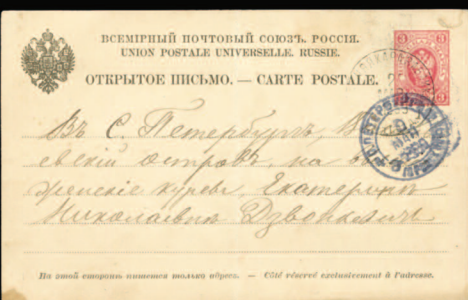 ВСЕМІРНЫЙ ПОЧТОВЫЙ СОЮЗЪ. РОССІЯ.
UNION POSTALE UNIVERSELLE. RUSSIE.
ОТКРЫТОЕ ПИСЬМО. — CARTE POSTALE.
3 3
Въ С. Петербургъ, В
евскій островъ, на
женскіе курсы, Екатеринѣ
Николаевнѣ
На этой сторонѣ пишется только адресъ. — Côté réservé exclusivement à l'adresse.